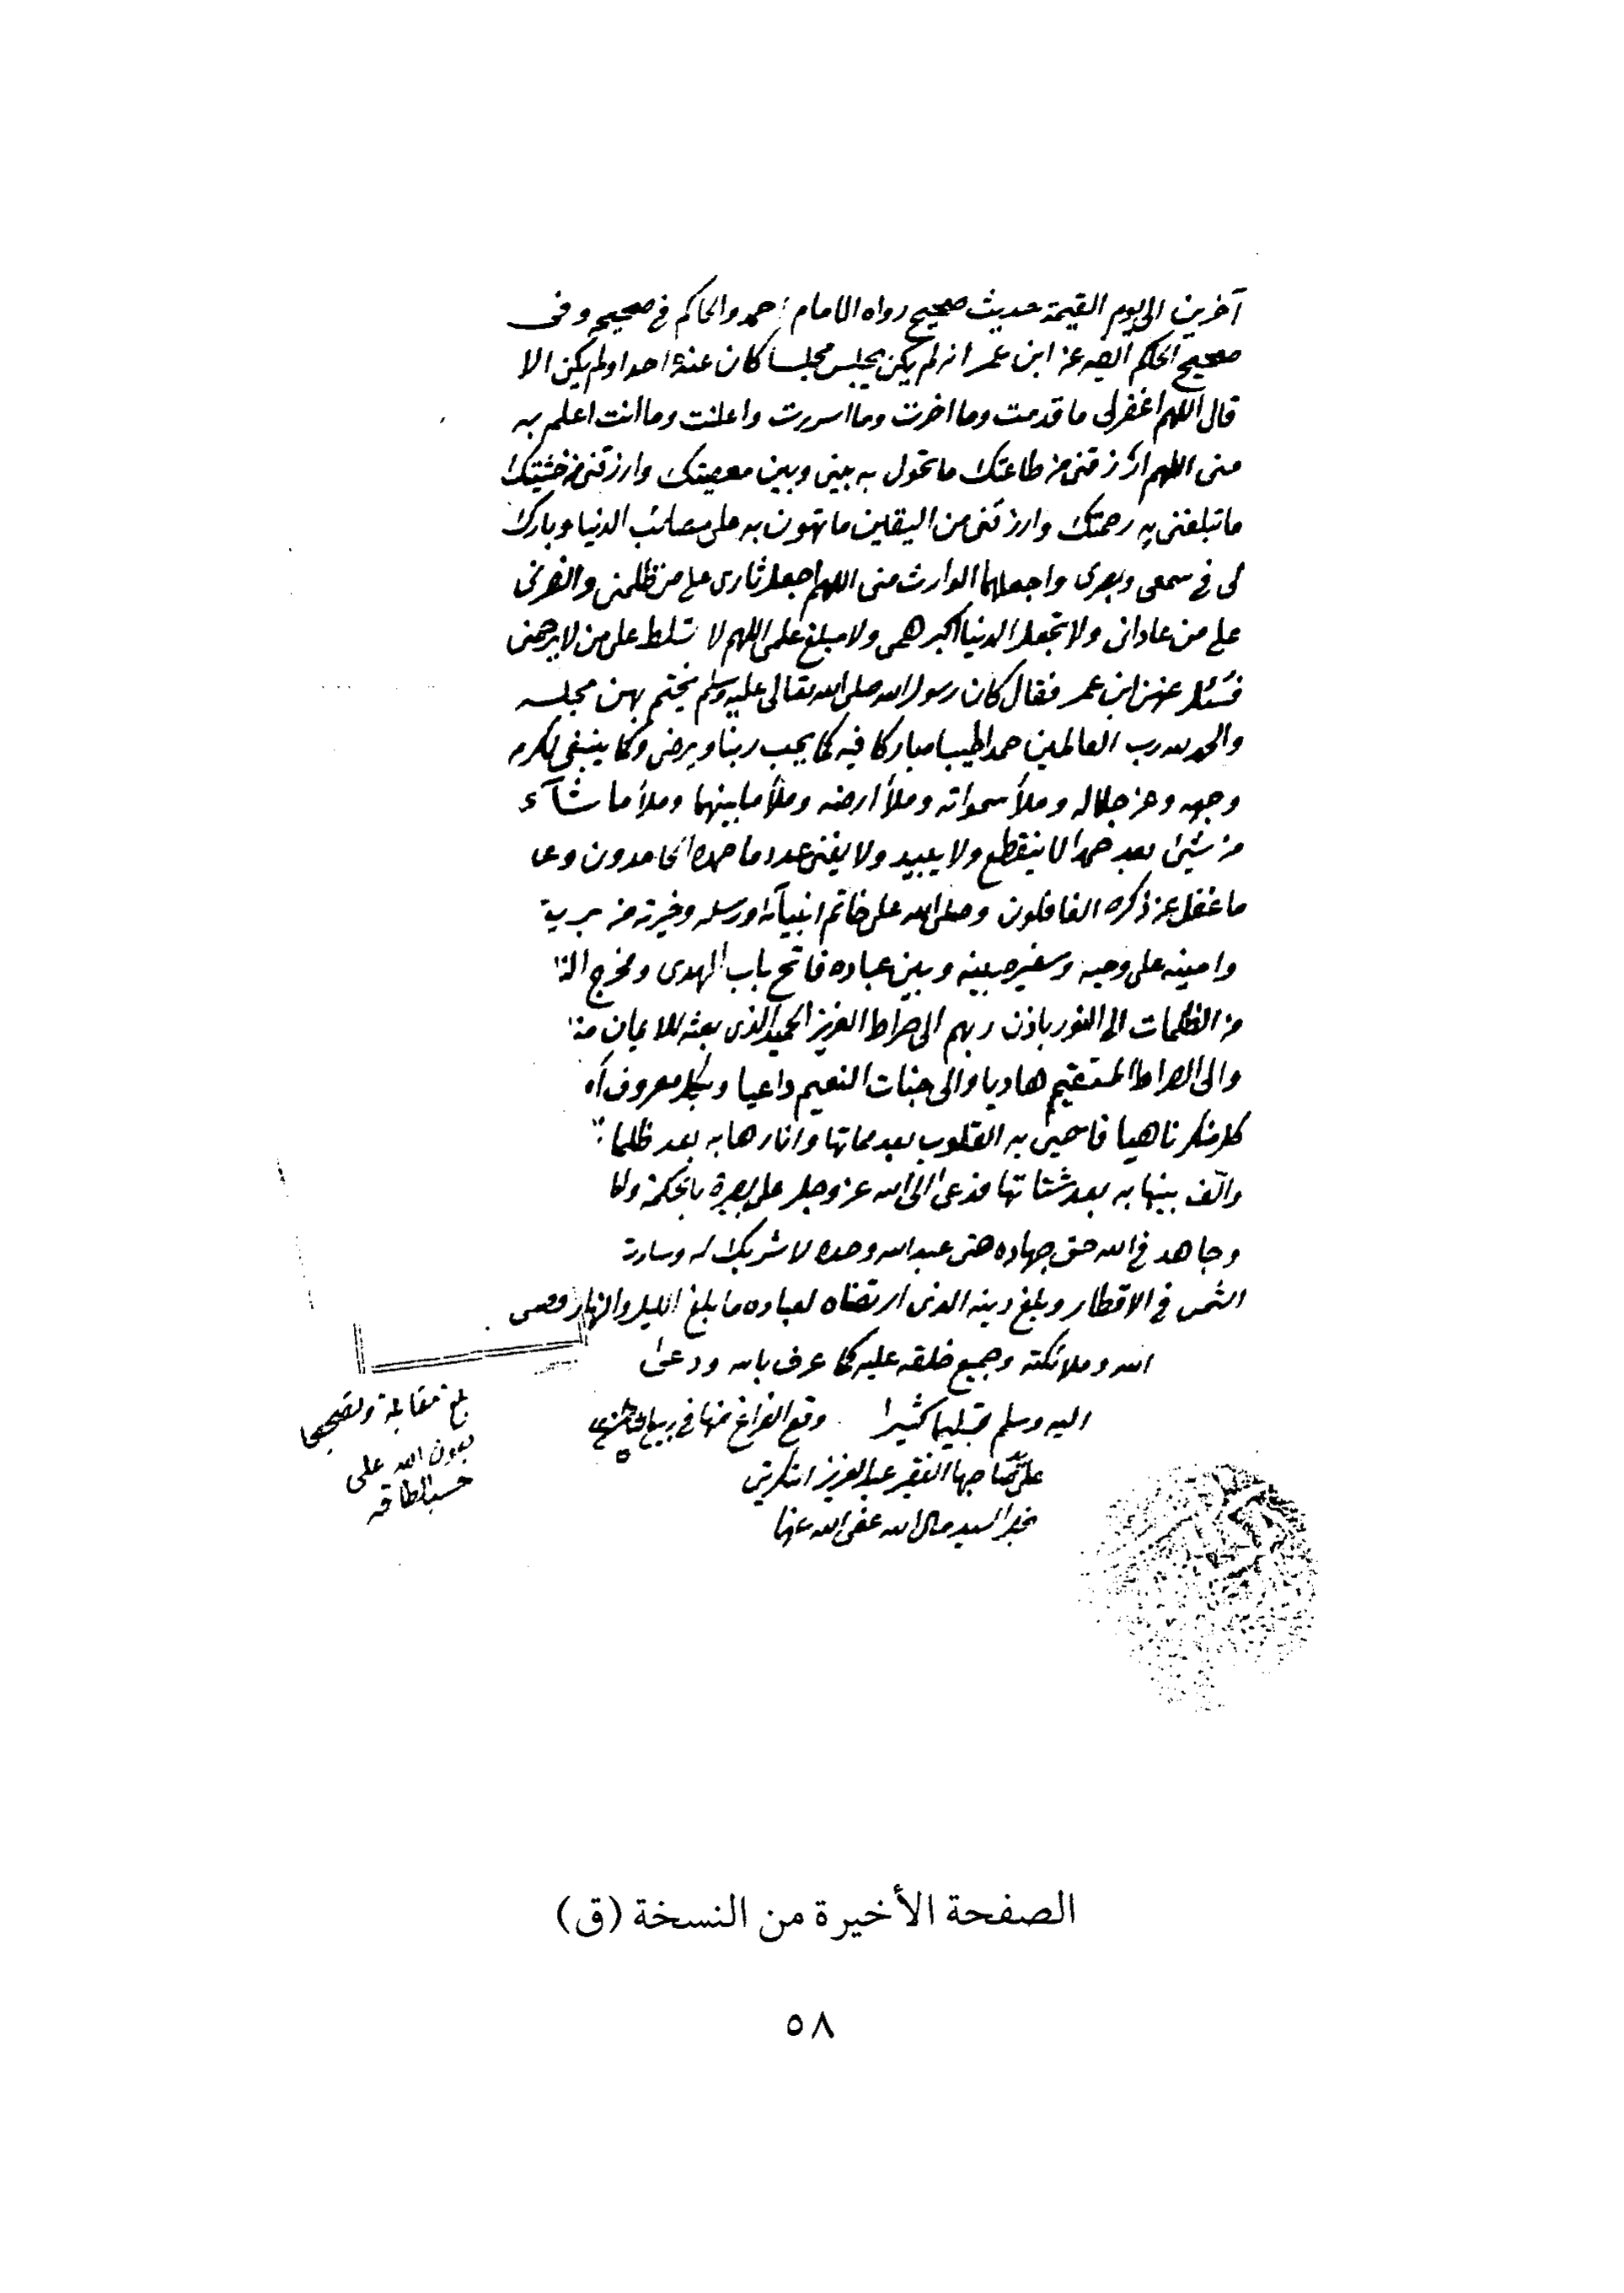 آخرين الى يوم القيمة حديث صحيح رواه الامام احمد والحاكم في صحيحه وفى
صحيح الحاكم ايضه عن ابن عمر انه لم يكن يجلس مجلسا كان عنده احد اولم يكن الا
قال اللهم اغفرلى ما قدمت وما اخرت وما اسررت واعلنت وما انت اعلم به
منى اللهم ارزقنى من طاعتك ما تحول به بينى وبين معصيتك وارزقنى من خشيتك
ما تبلغنى به رحمتك وارزقنى من اليقين ما تهون به على مصائب الدنيا وبارك
لى في سمعى وبصرى واجعلهما الوارث منى اللهم اجعل ثارى على من ظلمنى وانصرنى
على من عادانى ولا تجعل الدنيا اكبر همى ولا مبلغ علمى اللهم لا تسلط على من لا يرحمنى
فسئل عنهن ابن عمر فقال كان رسول الله صلى الله تعالى عليه وسلم يختم بهن مجلسه
والحمد لله رب العالمين حمدا طيبا مباركا فيه كما يحب ربنا ويرضى وكما ينبغى لكرم
وجهه وعز جلاله وملأ سمواته وملأ ارضه وملأ ما بينهما وملأ ما شآء
من شيئ بعد حمدا لا ينقطع ولا يبيد ولا يفنى عدد ما حمده الحامدون وعد
ما غفل عن ذكره الغافلون وصلى الله على خاتم انبيآئه ورسله وخيرته من برية
وامينه على وحيه وسفيره بينه وبين عباده فاتح باب الهدى ومخرج النا
من الظلمات الى النور باذن ربهم الى صراط العزيز الحميد الذى بعثه للايمان منا
والى الصراط المستقيم هاديا والى جنات النعيم داعيا وبكل معروف آم
كل منكر ناهيا فاحيى به القلوب بعد مماتها وانارها به بعد ظلما
والّف بينها به بعد شتاتها فدعى الى الله عز وجل على بصيرة بالحكمة والم
وجاهد في الله حق جهاده حتى عبد الله وحده لا شريك له وسارت
الشمس في الاقطار وبلغ دينه الذى ارتضاه لعباده ما بلغ الليل والنهار وصلى
الله وملائكته وجميع خلقه عليه كما عرف بالله ودعى
اليه وسلم تسليما كثيرا وقع الفراغ منها في ربيع
على الفقير عبد العزيز التكريتى
السيد مال الله عفى الله عنها
بلغ مقابلة وتصحيحا
بعون الله على
حسب الطاقه
الصفحة الأخيرة من النسخة (ق)
٥٨